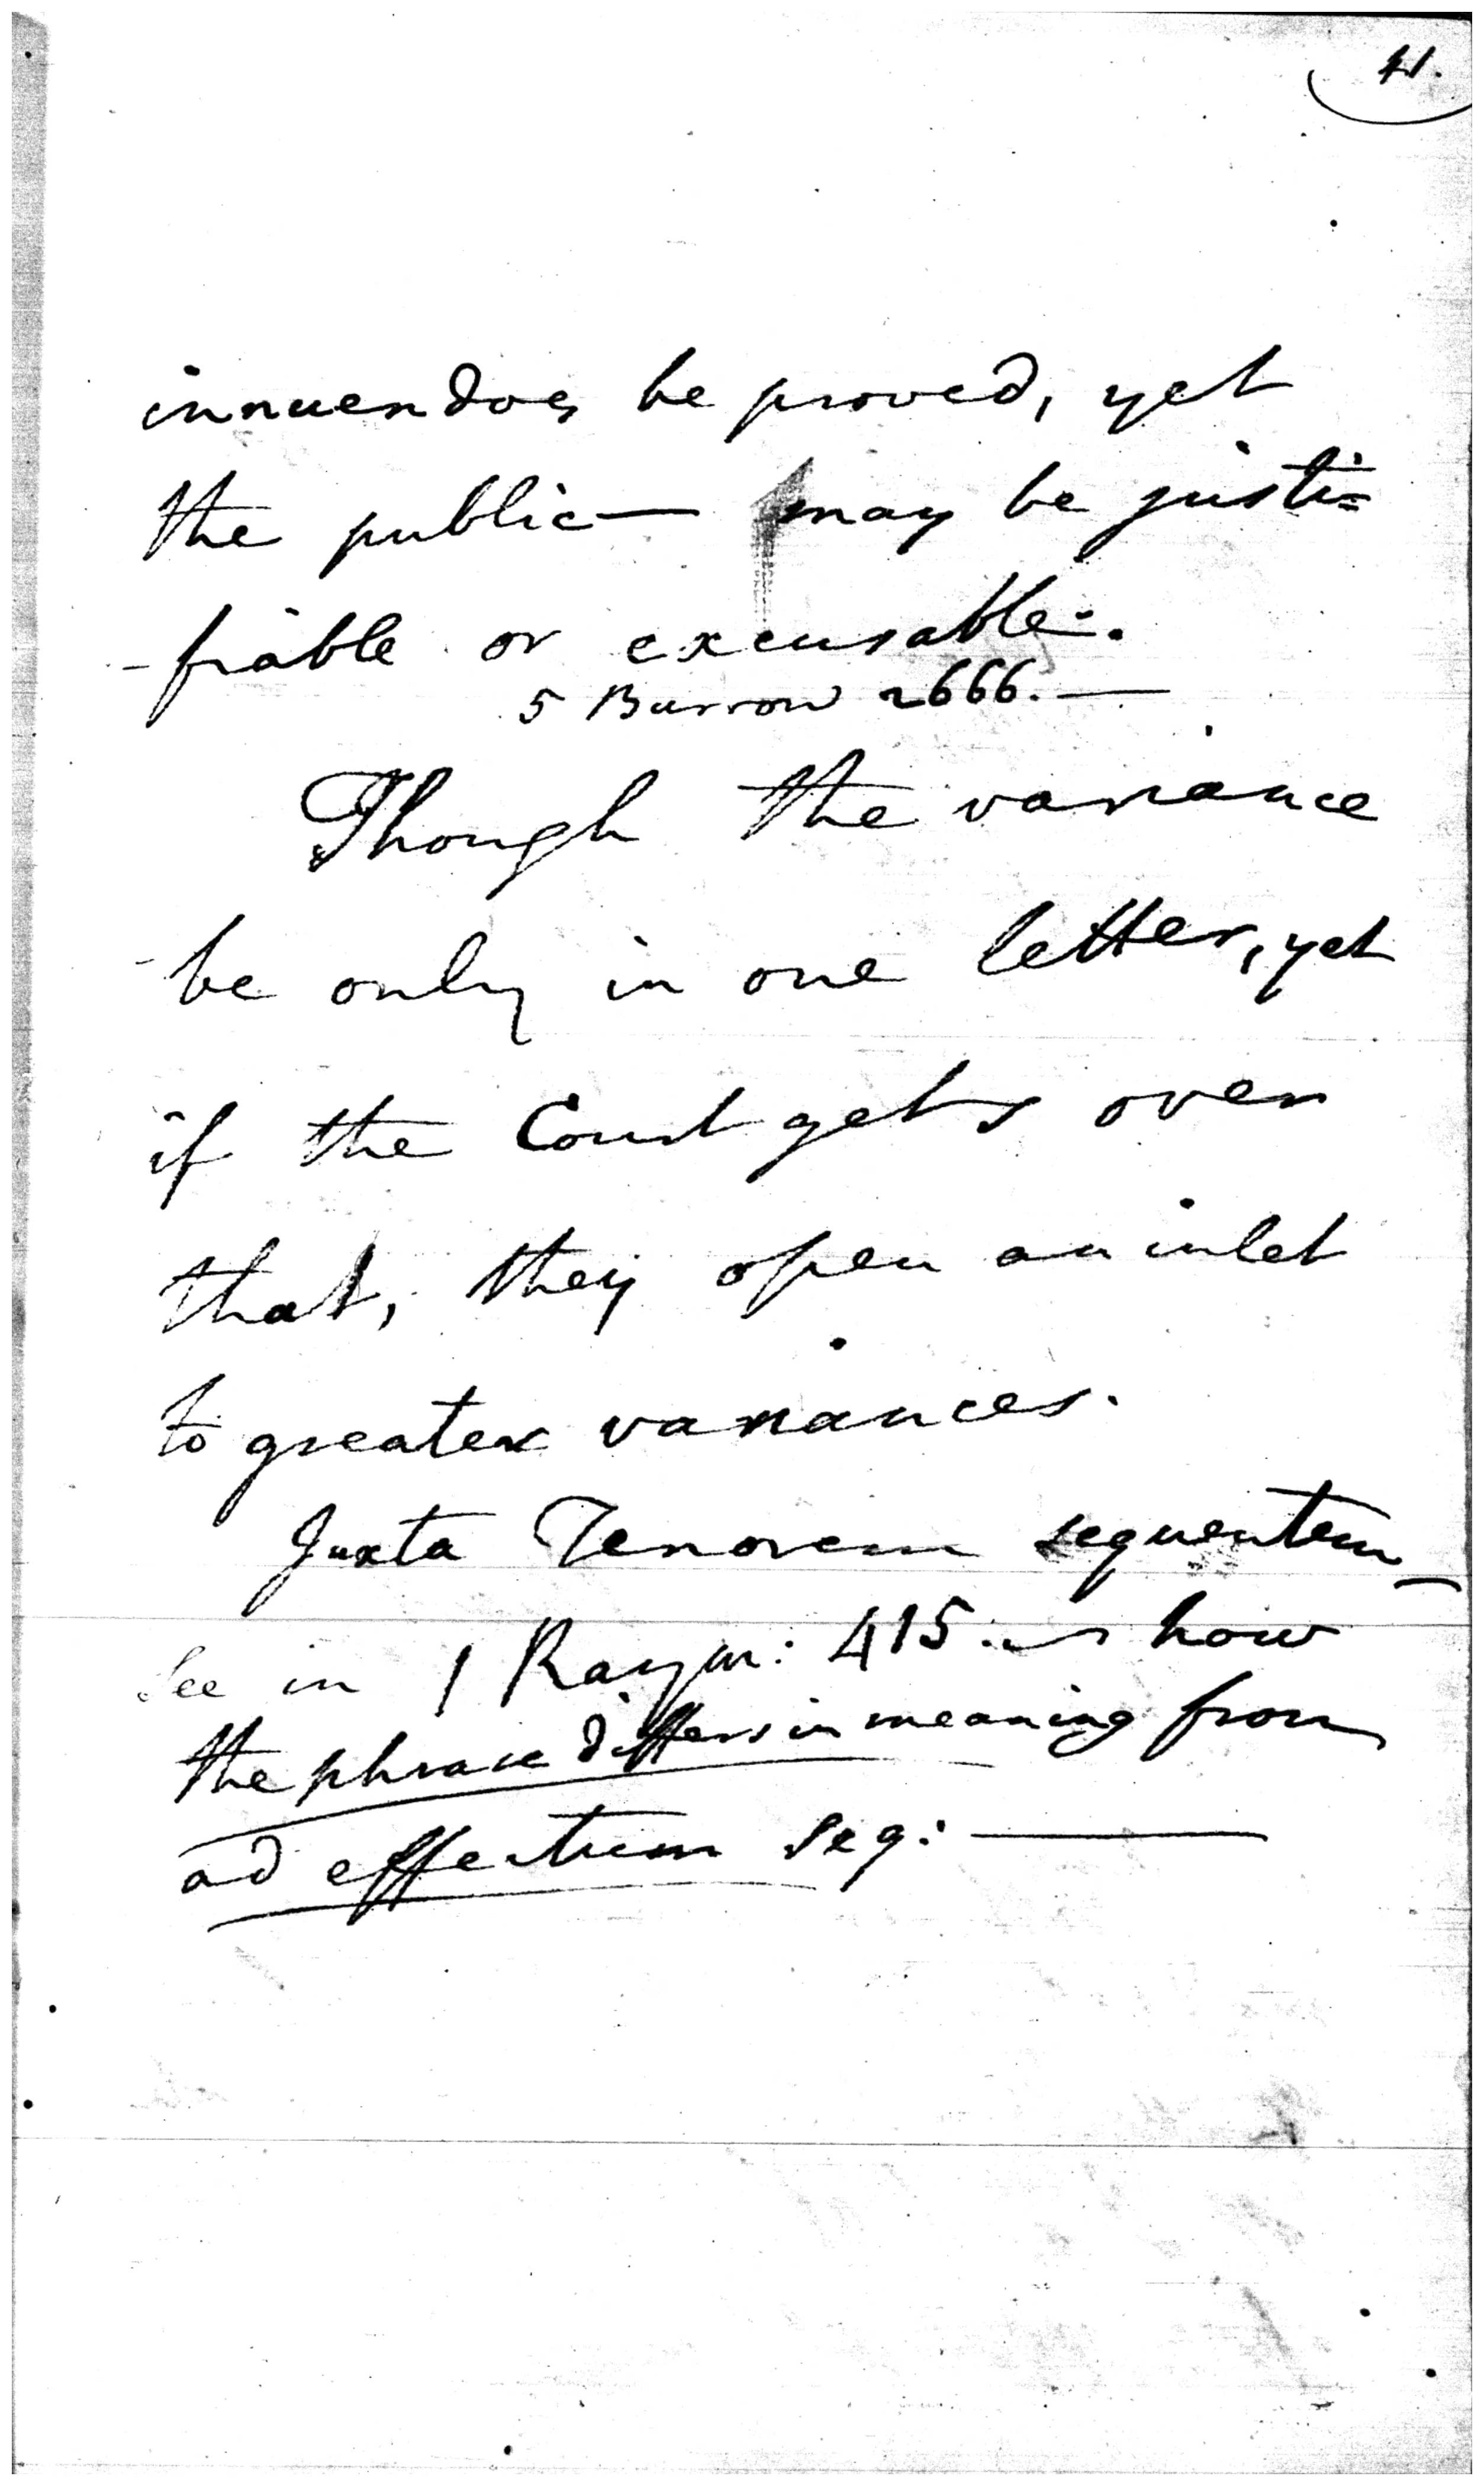 41.
innuendoes be proved, yet
the public— may be justi=
-fiable or excusable.
5 Burrow 2666. —
Though the variance
be only in one letter, yet
if the Court gets over
that, they open an inlet
to greater variances.
Juxta Tenorem sequentem —
See in 1 Raym: 415. how
the phrase differs in meaning from
ad effectum seq: —